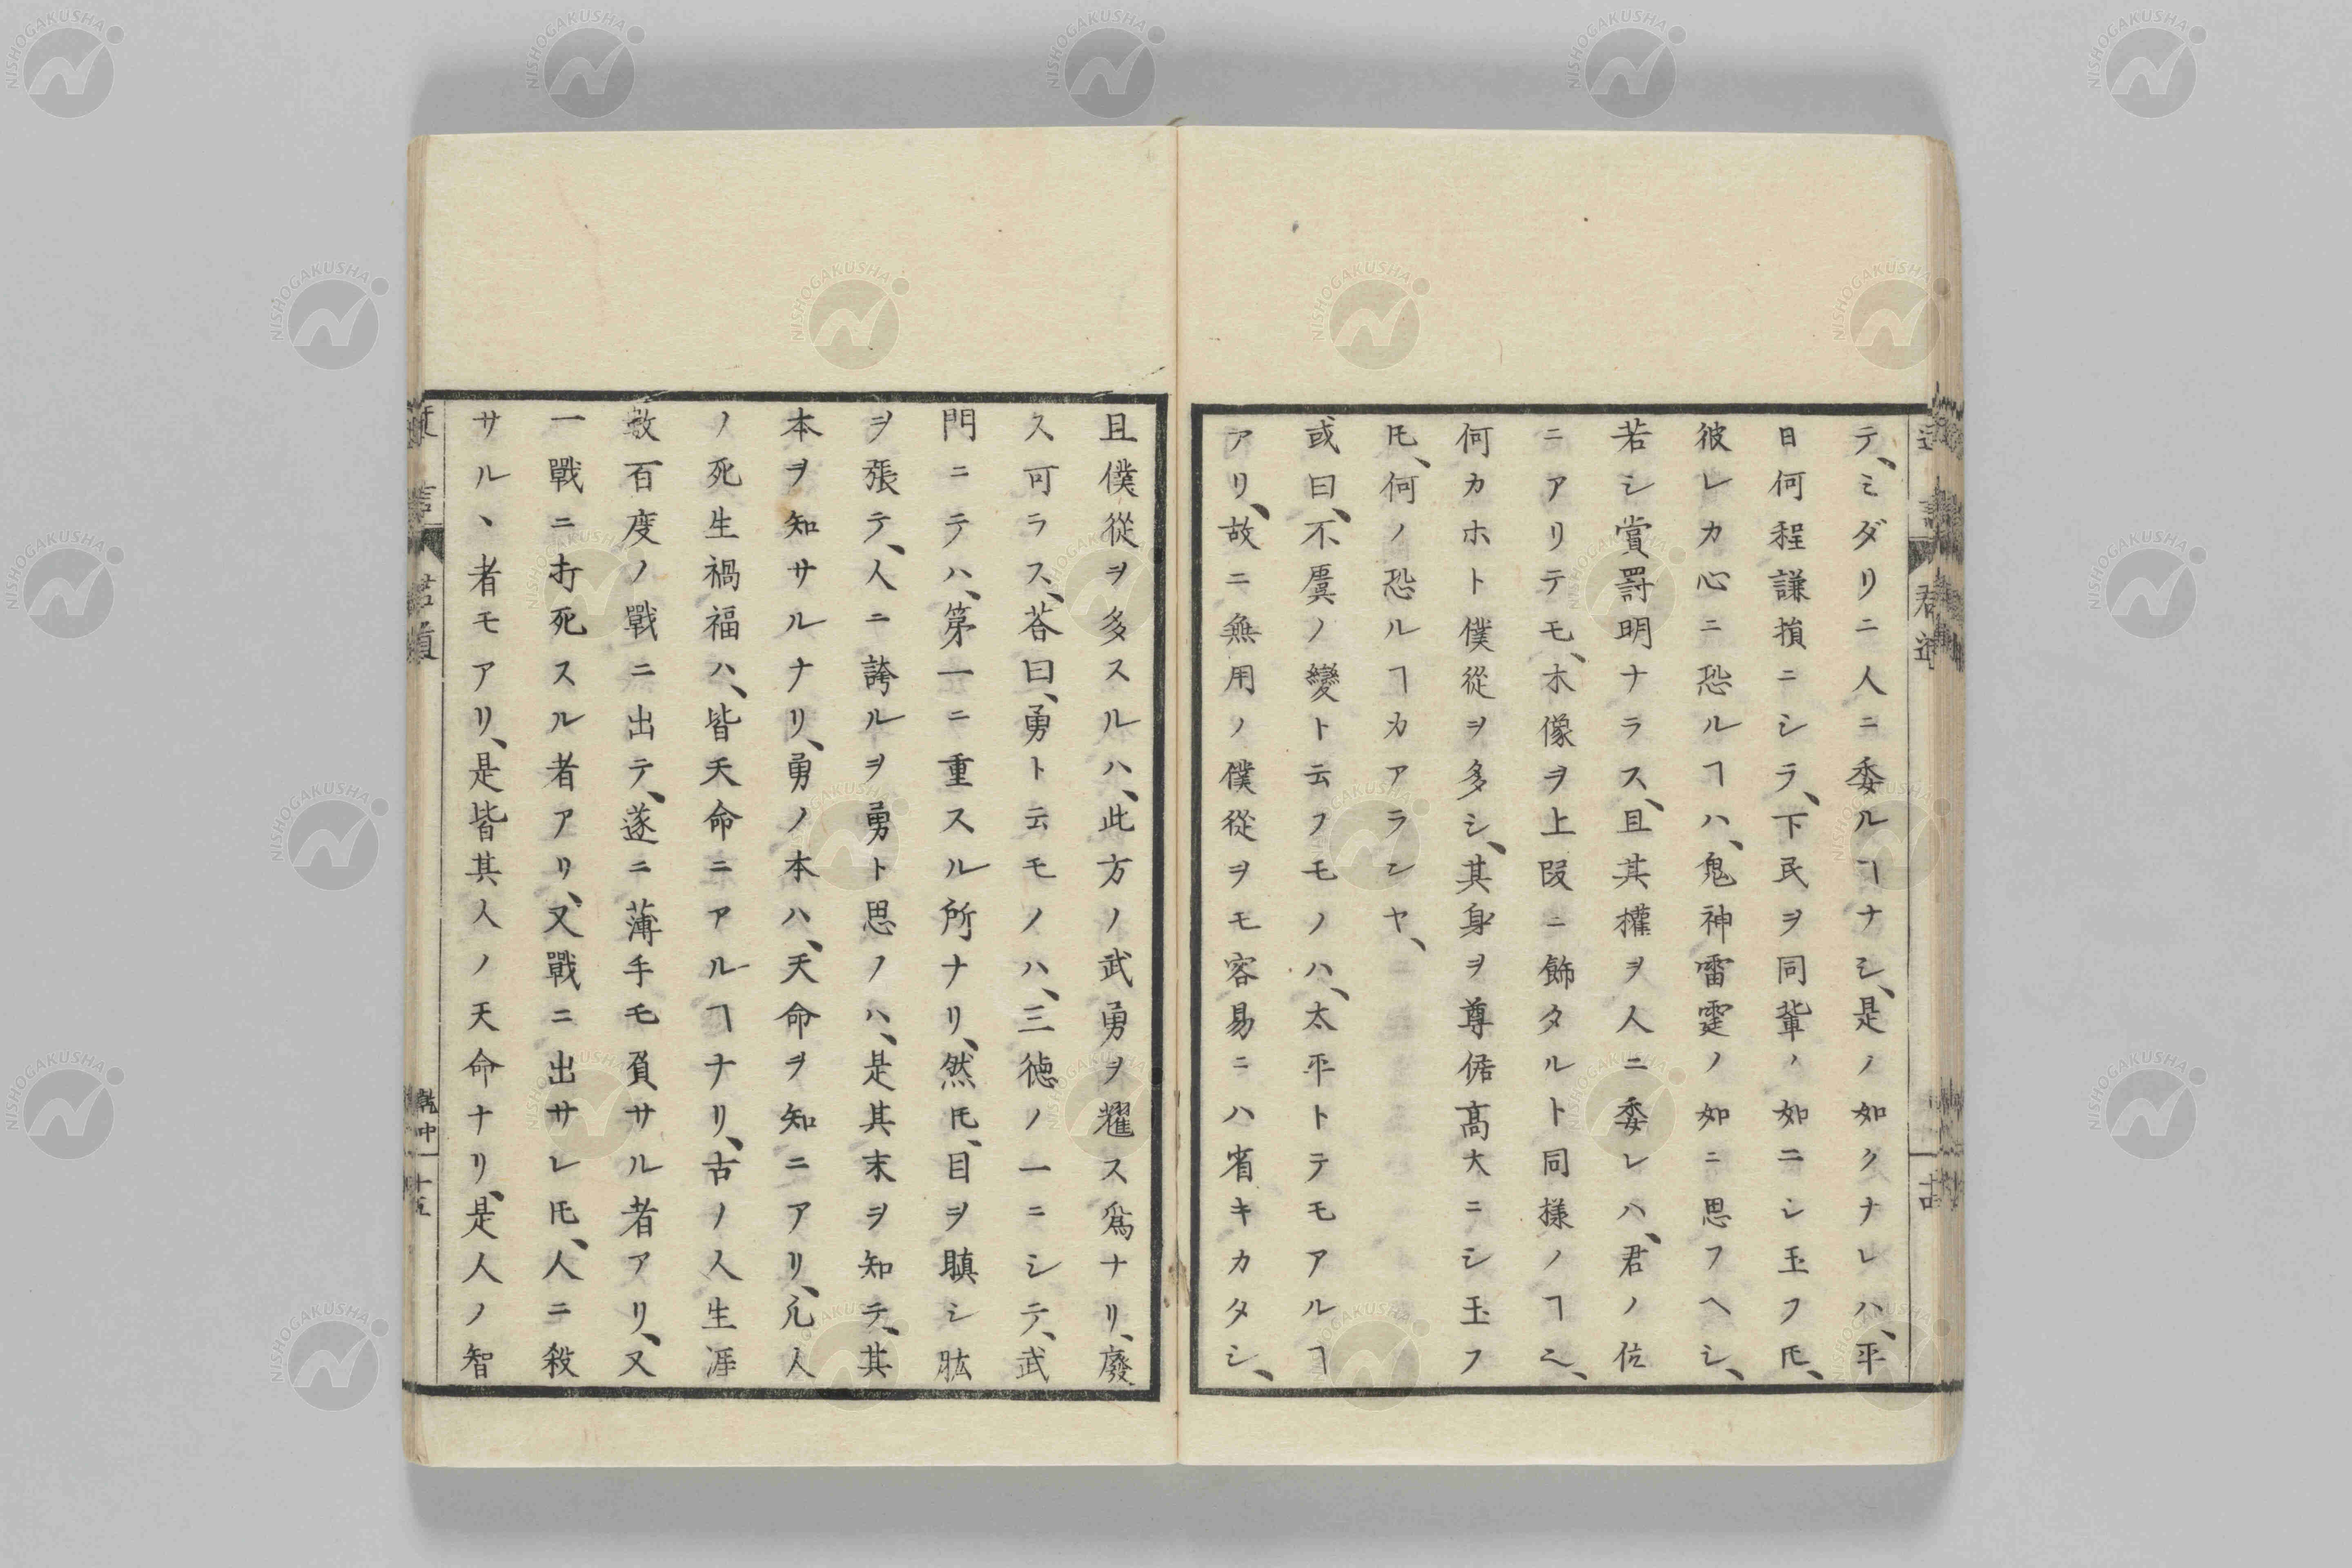 テ、ミダリニ人ニ委ルヿナシ、是ノ如クナレハ、平
日何程謙損ニシラ、下民ヲ同輩ノ如ニシ玉フ𪜈、
彼レカ心ニ恐ルヿハ、鬼神雷霆ノ如ニ思フヘシ、
若シ賞罰明ナラス、且其權ヲ人ニ委レハ、君ノ位
ニアリテモ、木像ヲ上段ニ飾タルト同様ノヿ也、
何カホト僕從ヲ多シ、其身ヲ尊倨高大ニシ玉フ
𪜈、何ノ恐ルヿカアランヤ、
或曰、不虞ノ變ト云フモノハ、太平トテモアルヿ
アリ、故ニ無用ノ僕從ヲモ容易ニハ省キカタシ、
且僕從ヲ多スルハ、此方ノ武勇ヲ耀ス爲ナリ、廢
ス可ラス、荅曰、勇ト云モノハ、三德ノ一ニシテ、武
門ニテハ、第一ニ重スル所ナリ、然𪜈、目ヲ瞋シ肱
ヲ張テ、人ニ誇ルヲ勇ト思ノハ、是其末ヲ知テ、其
本ヲ知サルナリ、勇ノ本ハ、天命ヲ知ニアリ、凡人
ノ死生禍福ハ、皆天命ニアルヿナリ、古ノ人生涯
數百度ノ戰ニ出テ、遂ニ薄手モ負サル者アリ、又
一戰ニ打死スル者アリ、又戰ニ出サレ𪜈、人ニ殺
サルヽ者モアリ、是皆其人ノ天命ナリ、是人ノ智
言
君道
乾中
十五
君道
十四
NISHOGAKUSHA